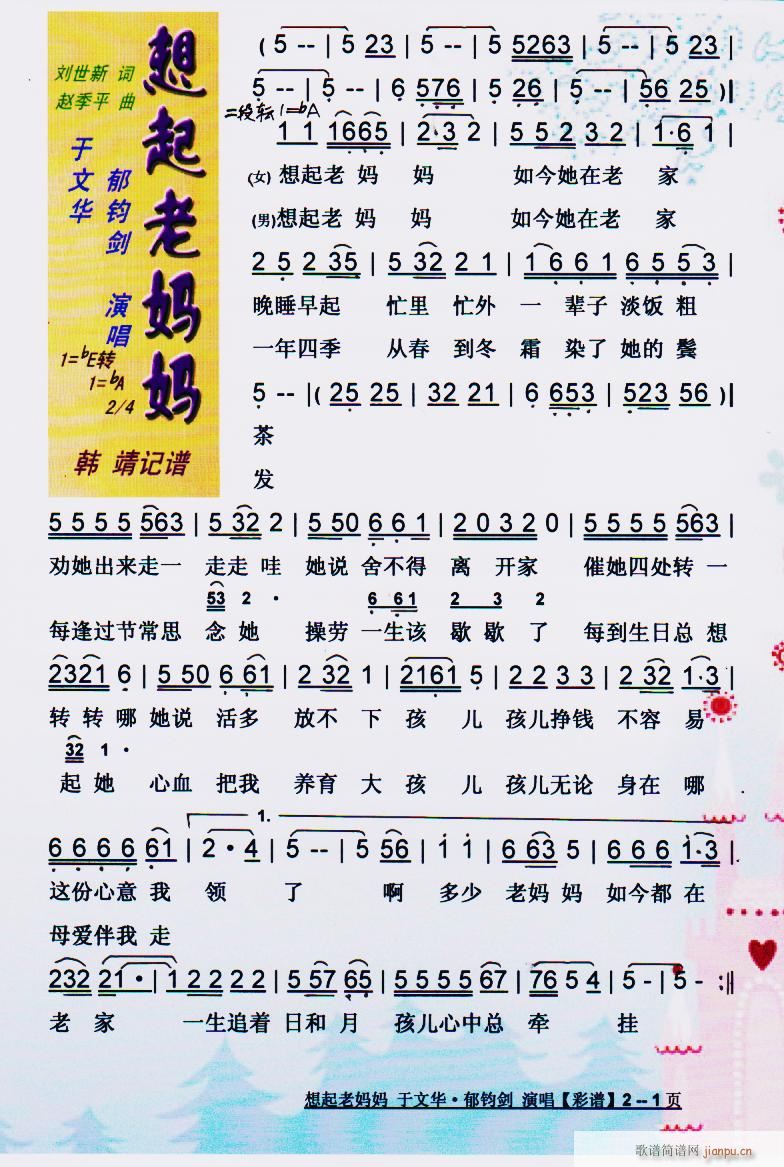 想起老妈妈
刘世新 词
赵季平 曲
于文华
郁钧剑 演唱
1=bE转
1=bA
2/4
韩 靖记谱
( 5 -- | 5 23 | 5 -- | 5 -- | 5263 | 5 -- | 5 23 |
5 -- | 5 -- | 6 576 | 5 26 | 5 -- | 56 25 )|
二段转1=bA
1 1 1665 | 2·3 2 | 5 5 2 3 2 | 1·6 1 |
(女) 想起老 妈 妈 如今她在老 家
(男)想起老 妈 妈 如今她在老 家
2 5 2 35 | 5 32 2 1 | 1 6 6 1 6 5 5 3 |
晚睡早起 忙里 忙外 一 辈子 淡饭 粗
一年四季 从春 到冬 霜 染了 她的 鬓
5 -- |( 25 25 | 32 21 | 6 653 | 523 56 )|
茶
发
5 5 5 5 563 | 5 32 2 | 5 50 6 6 1 | 2 0 3 2 0 | 5 5 5 5 563 |
劝她出来走一 走走 哇 她说 舍不得 离 开家 催她四处转 一
53 2 · 6 61 2 3 2
每逢过节常思 念她 操劳 一生该 歇歇 了 每到生日总 想
2321 6 | 5 50 6 61 | 2 32 1 | 2161 5 | 2 2 3 3 | 2 32 1·3 |
转 转 哪 她说 活多 放不 下 孩 儿 孩儿挣钱 不容 易
32 1 ·
起她 心血 把我 养育 大 孩 儿 孩儿无论 身在 哪
1.
6 6 6 6 61 | 2 · 4 | 5 -- | 5 56 | 1 1 | 6 63 5 | 6 6 6 1·3 |
这份心意 我 领 了 啊 多少 老妈 妈 如今都 在
母爱伴我 走
232 21 · | 1 2 2 2 2 | 5 57 65 | 5 5 5 5 67 | 76 5 4 | 5 - | 5 - :||
老 家 一生追着 日和 月 孩儿心中总 牵 挂
想起老妈妈 于文华·郁钧剑 演唱【彩谱】2--1页
歌谱简谱网 jianpu.cn